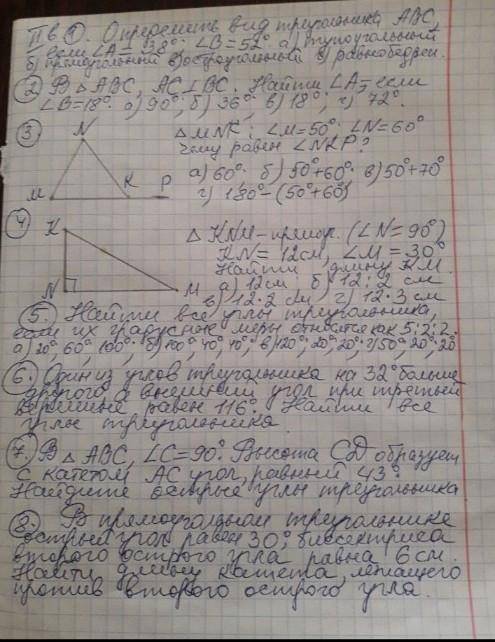 II в. ①. Определить вид треугольника ABC,
если ∠A = 38°; ∠B = 52° а) тупоугольный
б) прямоугольный в) остроугольный г) равнобедрен.
② В △ ABC, AC⊥BC. Найти ∠A, если
∠B=18° а) 90°; б) 36° в) 18°; г) 72°.
③ N M K P
△ MNK; ∠M=50° ∠N=60°
чему равен ∠NKP?
а) 60° б) 50°+60° в) 50°+70°
г) 180°-(50°+60°)
④ K N M
△ KNM-прямоуг. (∠N=90°)
KN = 12см, ∠M = 30°
Найти длину KM.
а) 12см б) 12:2 см
в) 12·2 см г) 12·3 см
⑤. Найти все углы треугольника,
если их градусные меры относятся как 5:2:2.
а) 20°, 60°, 100°; б) 100°, 40°, 40°; в) 120°, 20°, 20° г) 50°, 20°, 20°
⑥. Один из углов треугольника на 32° больше
другого а внешний угол при третьей
вершине равен 116°. Найти все
углы треугольника.
⑦. В △ ABC, ∠C=90°. Высота CD образует
с катетом AC угол, равный 43°.
Найдите острые углы треугольника
⑧. В прямоугольном треугольнике
острый угол равен 30°, биссектриса
второго острого угла равна 6см.
Найти длину катета, лежащего
против второго острого угла.